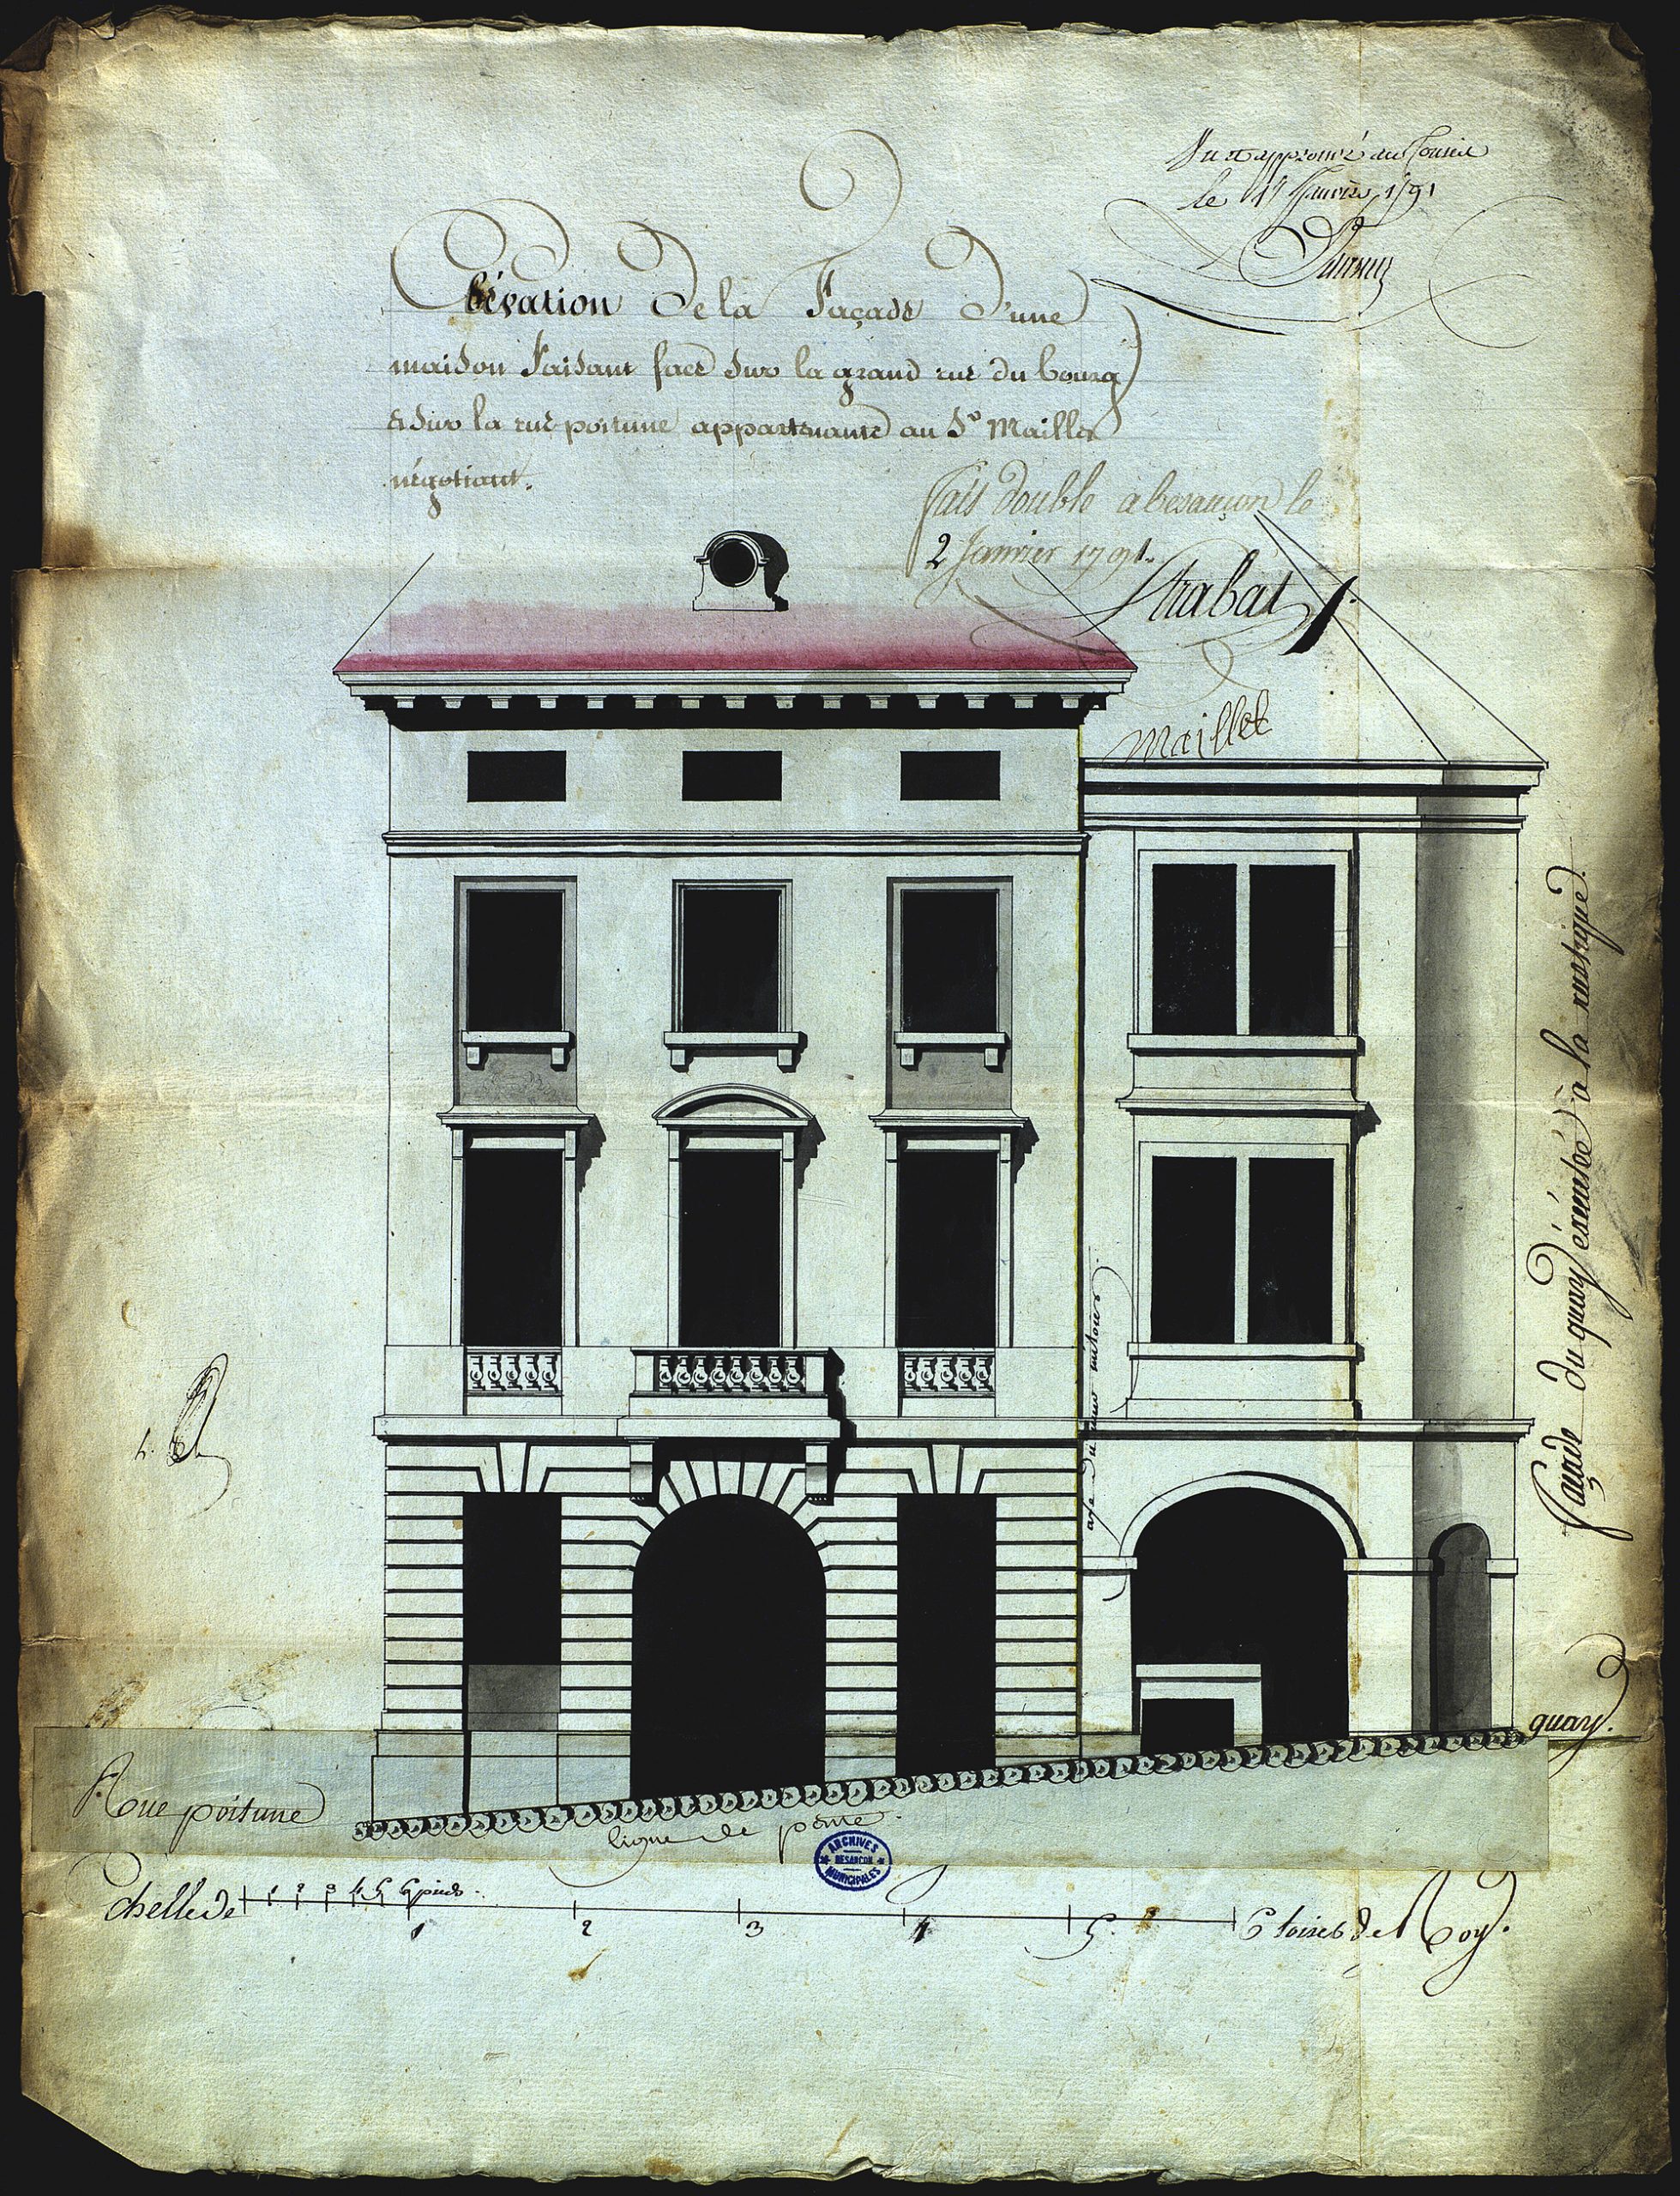 Vu et approuvé au Conseil
le 17 Janvier 1791
Élévation de la Façade d'une
maison faisant face sur la grand rue du bourg
& sur la rue poitune appartenante au Sr Maillet
négotiant.
fais double à besançon le
2 Janvier 1791.
Strabat
Maillet
façade du quay éxécutée à la rustique
axe du mur mitoien
quay.
Rue poitune
ligne de pente
ARCHIVES
BESANCON
MUNICIPALES
Echelle de 1 2 3 4 5 6 pieds.
1 2 3 4 5. 6 toises de Roy.